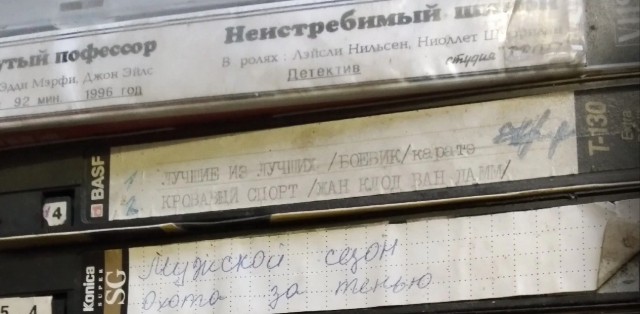 утый пофессор
Эдди Мэрфи, Джон Эйлс
92 мин. 1996 год
Неистребимый
В ролях: Лэйсли Нильсен, Николлет
Детектив
студия
BASF
1. ЛУЧШИЕ ИЗ ЛУЧШИХ /БОЕВИК/карате
2. КРОВАВЫЙ СПОРТ /ЖАН КЛОД ВАН ДАММ/
T-130
4
Konica
SUPER
SG
Мужской сезон
охота за тенью
5 4